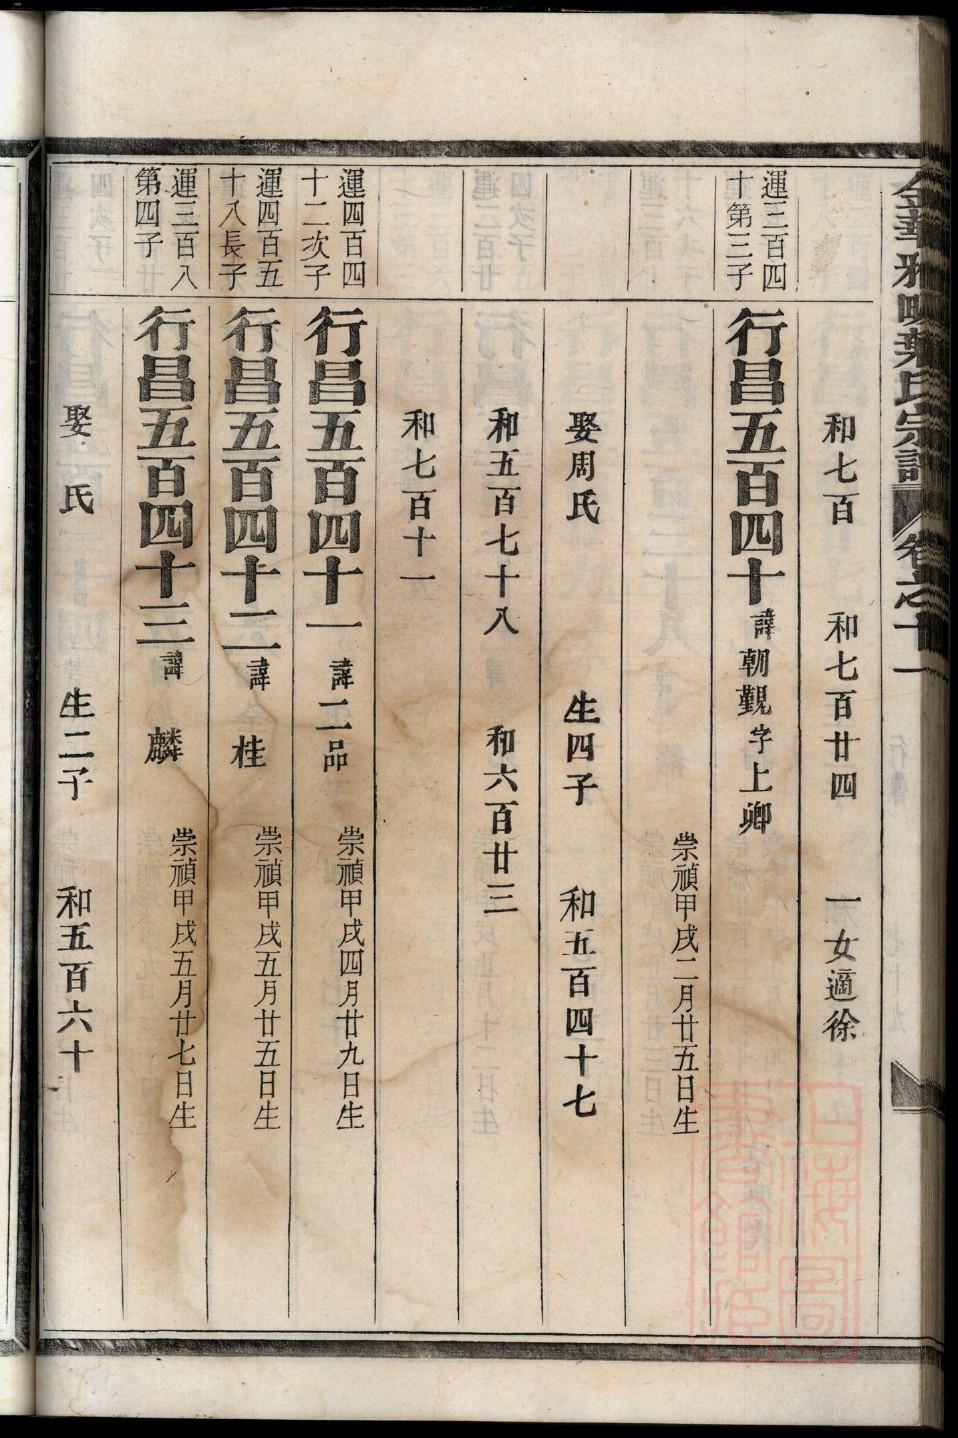 金華雅畈葉氏宗譜 卷之十一
和七百 和七百廿四 一女適徐
運三百四
十第三子
行昌五百四十 諱朝覲 字上卿
崇禎甲戌二月廿五日生
娶周氏 生四子 和五百四十七
和五百七十八 和六百廿三
和七百十一
運四百四
十二次子
行昌五百四十一 諱二品 崇禎甲戌四月廿九日生
運四百五
十八長子
行昌五百四十二 諱桂 崇禎甲戌五月廿五日生
運三百八
第四子
行昌五百四十三 諱麟 崇禎甲戌五月廿七日生
娶 氏 生二子 和五百六十